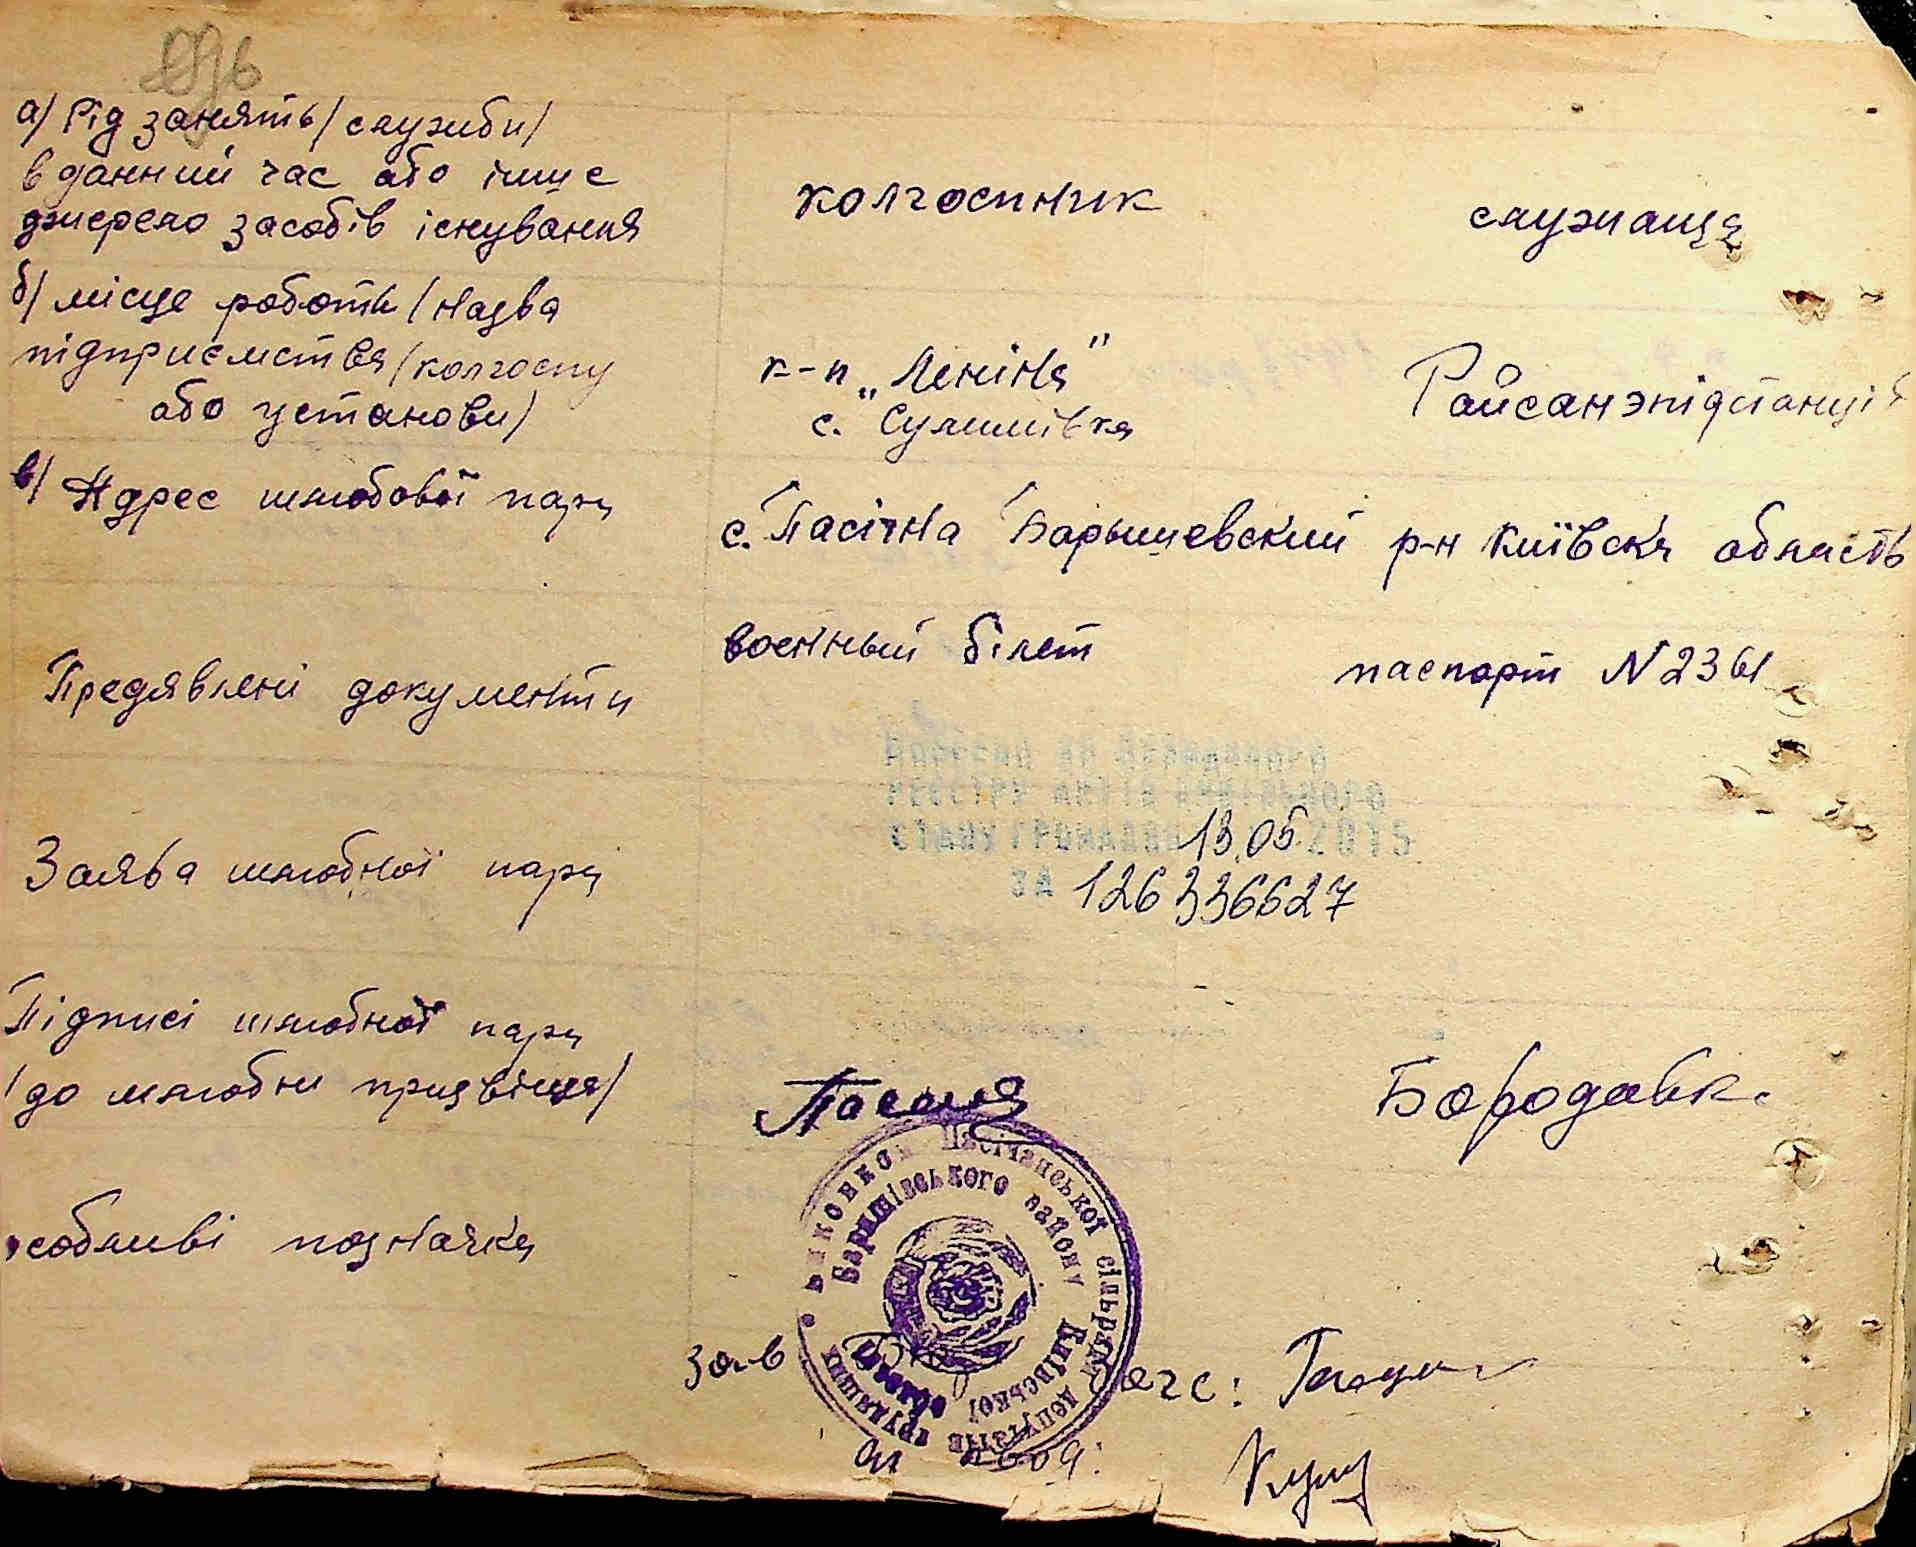 а/ Рід занять/служби/
в данний час або інше
джерело засобів існування
колгоспник
служаща
б/ місце роботи/назва
підприємства/колгоспу
або установи/
к-п "Леніна"
с. Сулимівка
Райсанэпідстанція
в/ Адрес шлюбової пари
с. Пасічна Барышевский р-н Київска область
Предявлені документи
военный білет
паспорт N 2361
Внесено до Державного
реєстру актів цивільного
стану громадян 13.05 2015
за 126336627
Заява шлюбної пари
Підписі шлюбної пари
/до шлюбни призвіща/
Бородавк.
особливі позначки
Виконком Пасічанської сільради депутатів трудящих
Баришівського району Київської області
Зав
загс: